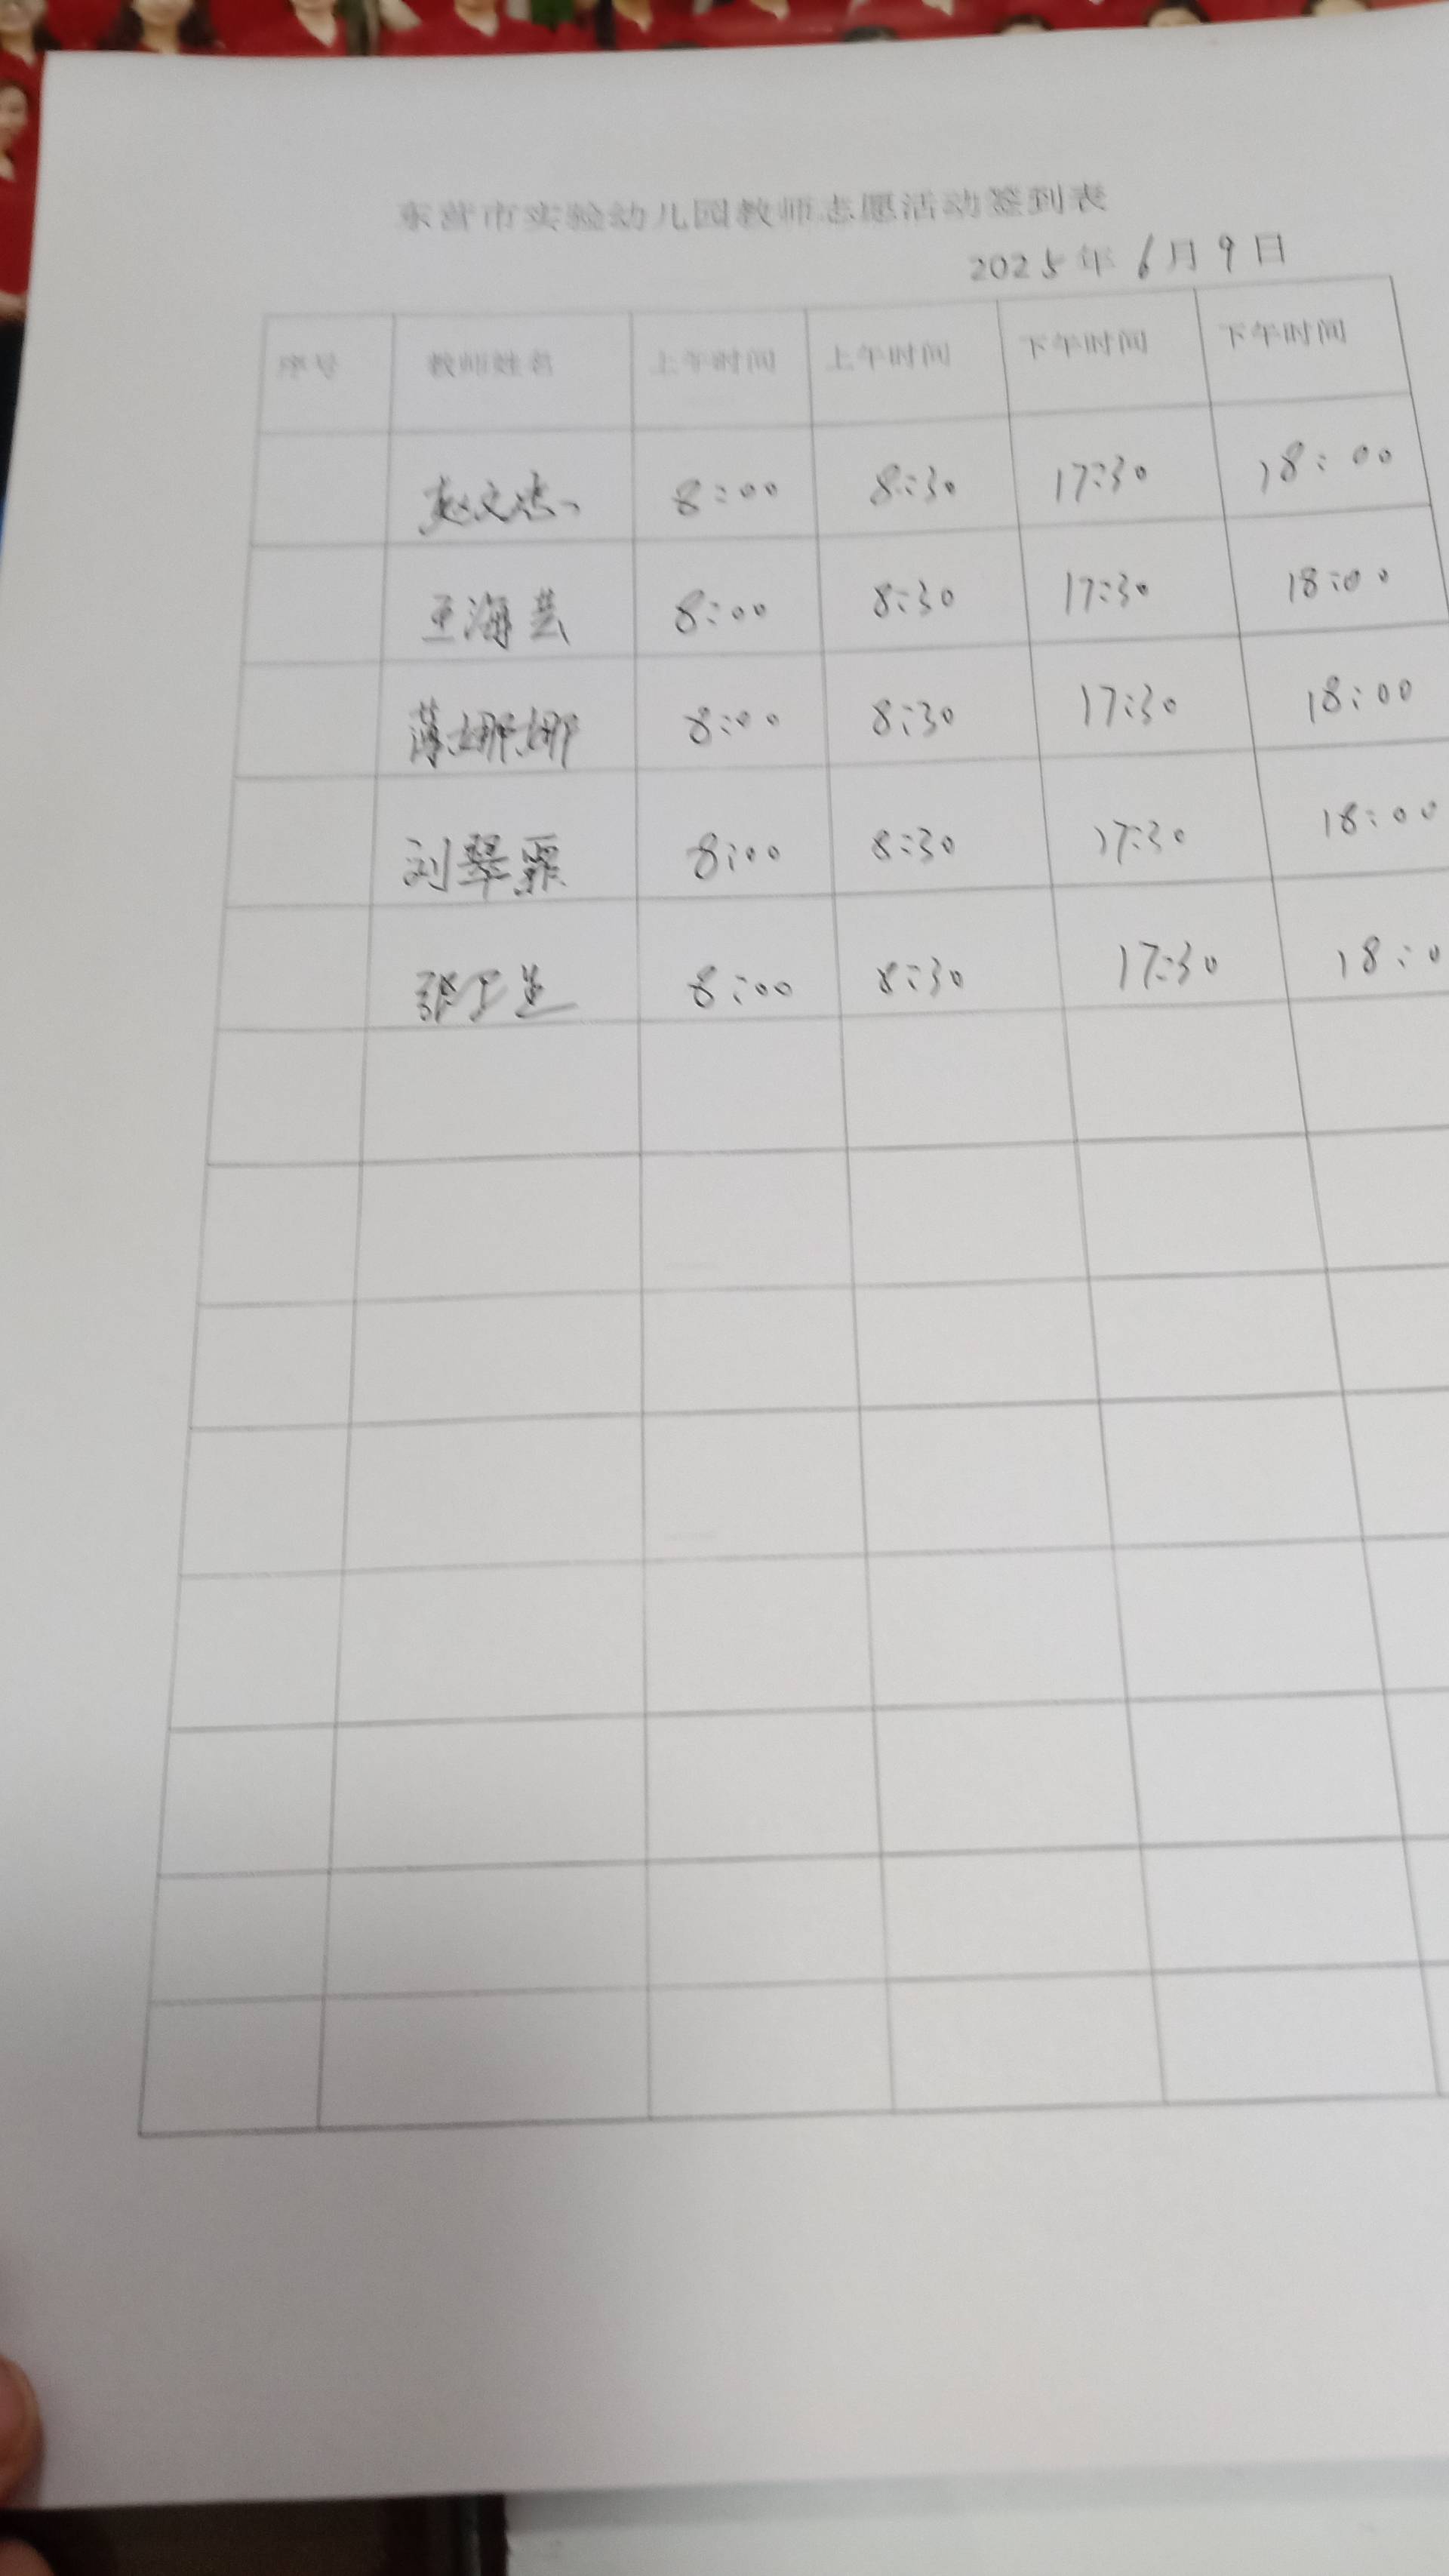 东营市实验幼儿园教师志愿活动签到表
2025年6月9日
序号 教师姓名 上午时间 上午时间 下午时间 下午时间
赵文杰 8:00 8:30 17:30 18:00
王海芸 8:00 8:30 17:30 18:00
薄娜娜 8:00 8:30 17:30 18:00
刘翠霏 8:00 8:30 17:30 18:00
8:00 8:30 17:30 18:0